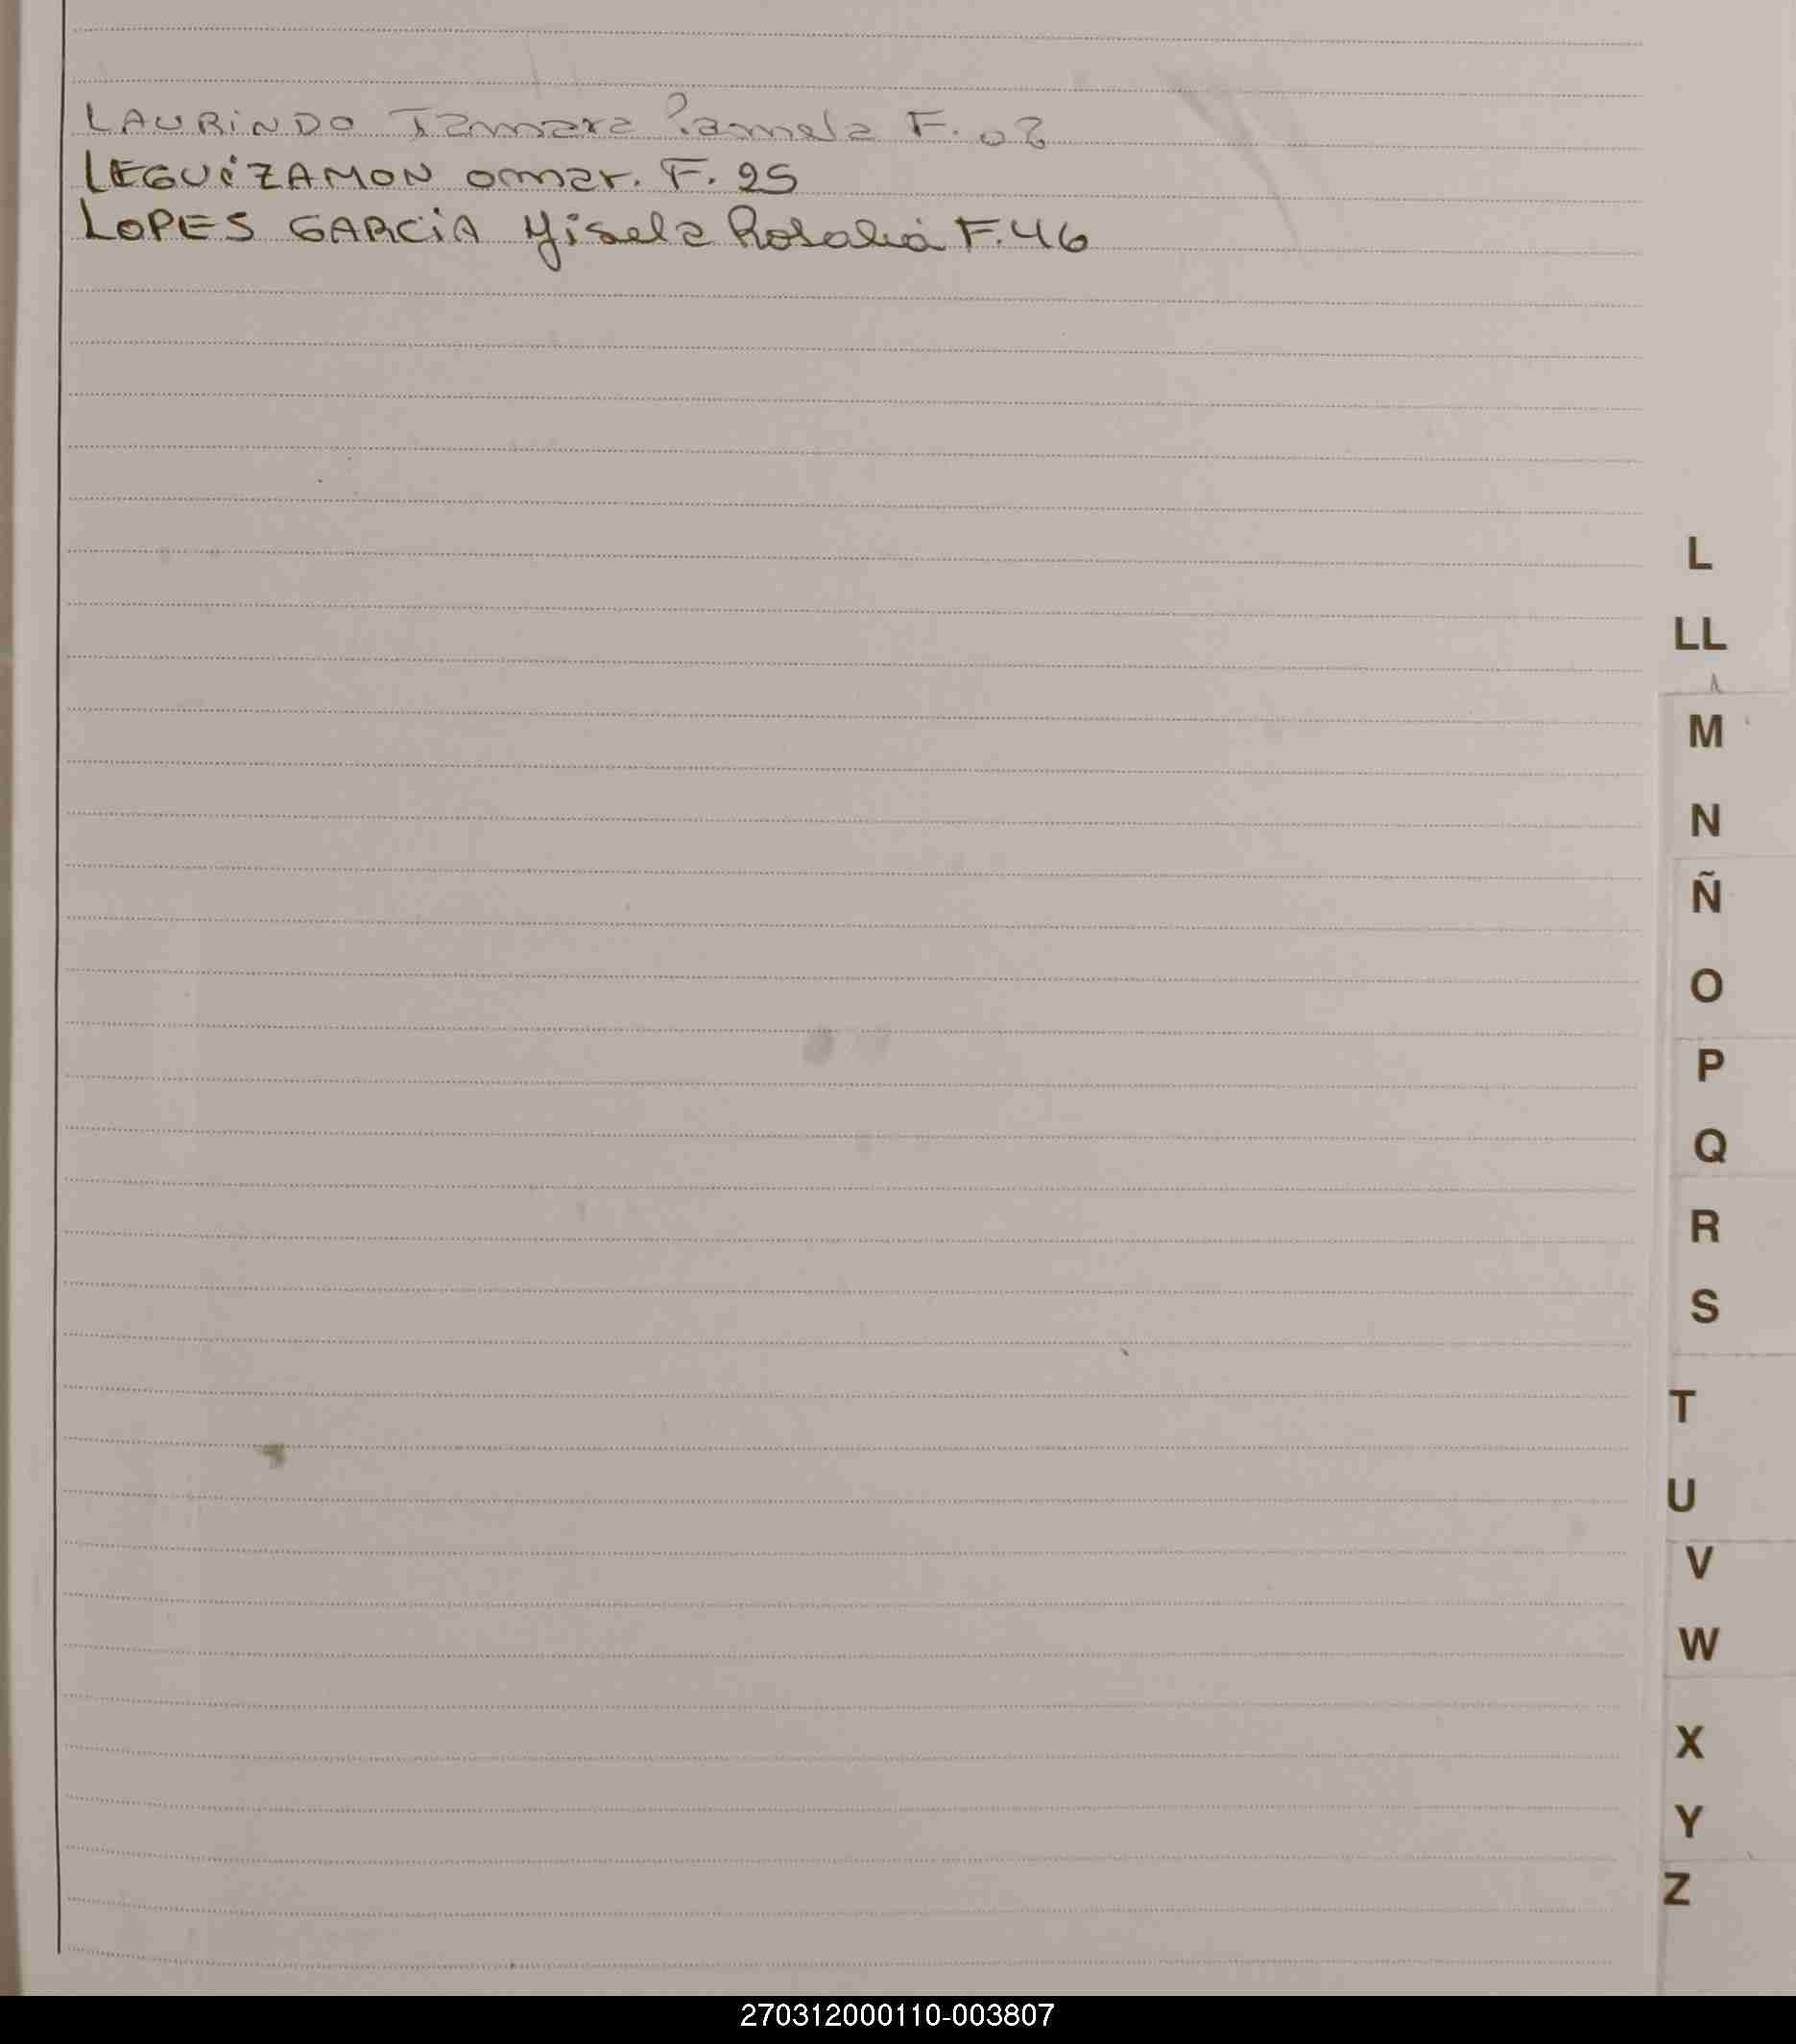 LAURINDO Tamara Pamela F. 02
LEGUIZAMON Omar. F. 25
LOPES GARCIA Yisela Rosalia F. 46
L
LL
M
N
Ñ
O
P
Q
R
S
T
U
V
W
X
Y
Z
270312000110-003807